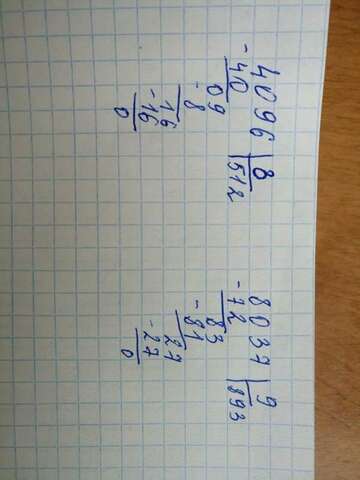 4096 8
-40 512
09
-8
16
-16
0
8037 9
-72 893
83
-81
27
-27
0